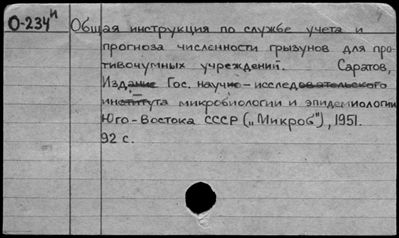 О-234и Общая инструкция по службе учета и
прогноза численности грызунов для про-
тивочумных учреждений. Саратов,
Издание Гос. научно-исследовательского
института микробиологии и эпидемиологии
Юго-Востока СССР („Микроб"), 1951.
92 с.